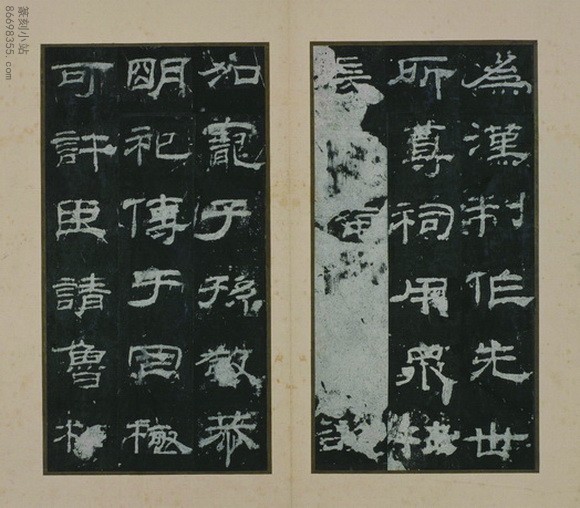 為漢制作先世
所尊祠用眾牲
長
加寵子孫敬恭
明祀傳于罔極
可許臣請魯相
篆刻小站
86698355.com